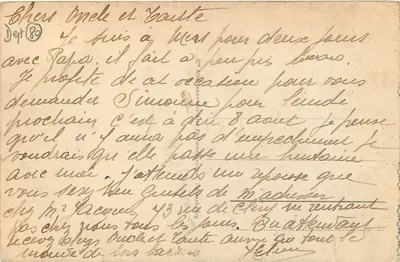 Chers Oncle et Tante
Dept (80)
Je suis à Mers pour deux jours
avec Papa, il fait à peu près beau.
Je profite de cet occasion pour vous
demander Simonne pour lundi
prochain c'est à dire 8 août je pense
qu'il n'y aura pas d'empêchement je
voudrais que elle passe une huitaine
avec moi. J'attends une réponse que
vous serez bien gentils de m'adresser
chez Mr Jacques 73 rue de
pas chez vous tous les jours. En attendant
recevez chers Oncle et Tante ainsi que tout le
monde de bons baisers